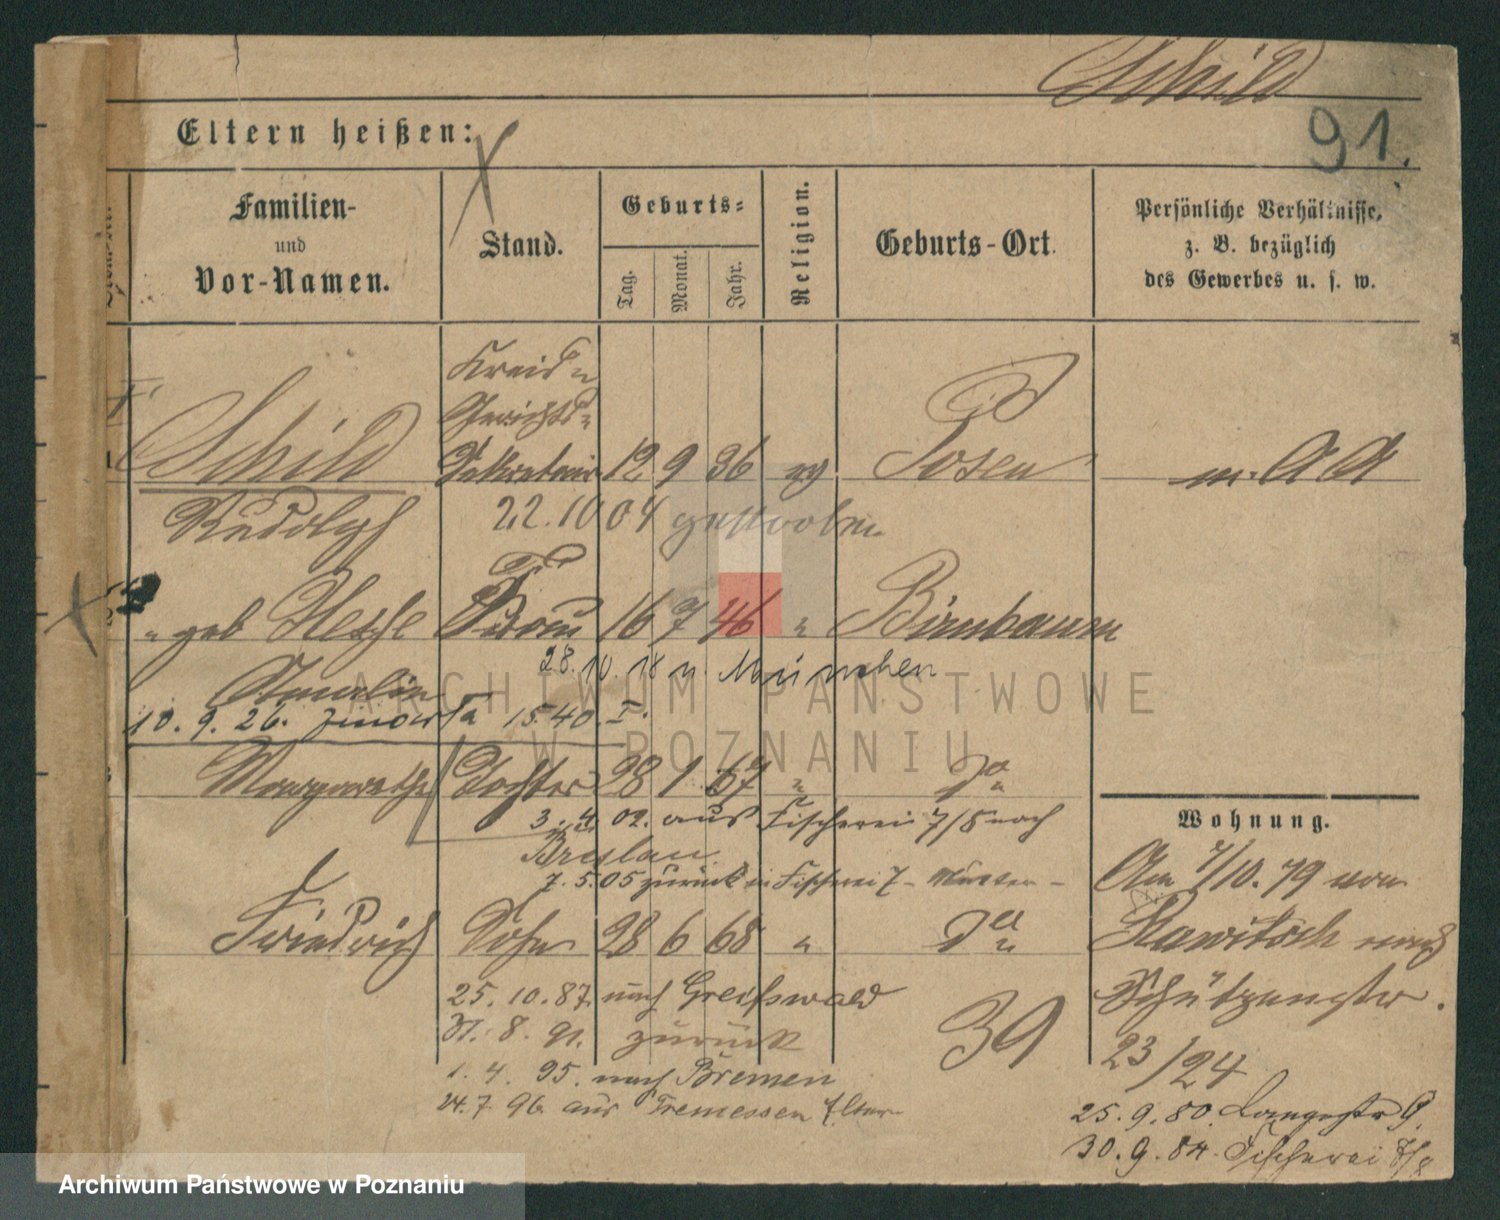 Schild
91.
Eltern heißen:
Familien-
und
Vor-Namen.
Stand.
Geburts-
Tag.
Monat.
Jahr.
Religion.
Geburts-Ort.
Persönliche Verhältnisse,
z. B. bezüglich
des Gewerbes u. s. w.
Kreis-
Gerichts-
Schild Sekretair 12 9 36 Posen
Rudolph 22.10 04 gestorben
" geb Frau 16 7 46 " Birnbaum
28.10.18 n. München
Amalie
10. 9. 26. 15.40. I.
Margarethe Tochter 28 1 67 " Da
3. 4. 02. aus Fischerei 7/8 nach
Breslau
7.5.05 zurück Fischerei 7 - Mutter -
Friedrich Sohn 28 6 68 " Da
25. 10. 87. nach Greifswald
31. 8. 91. zurück
39
1. 4. 95. nach Bremen
24.7. 96. aus Tremessen
Wohnung.
Am 7/10. 79 von
Rawitsch nach
Schützenstr.
23/24
25. 9. 80. Langestr 9.
30. 9. 84. Fischerei 7/8
ARCHIWUM PAŃSTWOWE
W POZNANIU
Archiwum Państwowe w Poznaniu